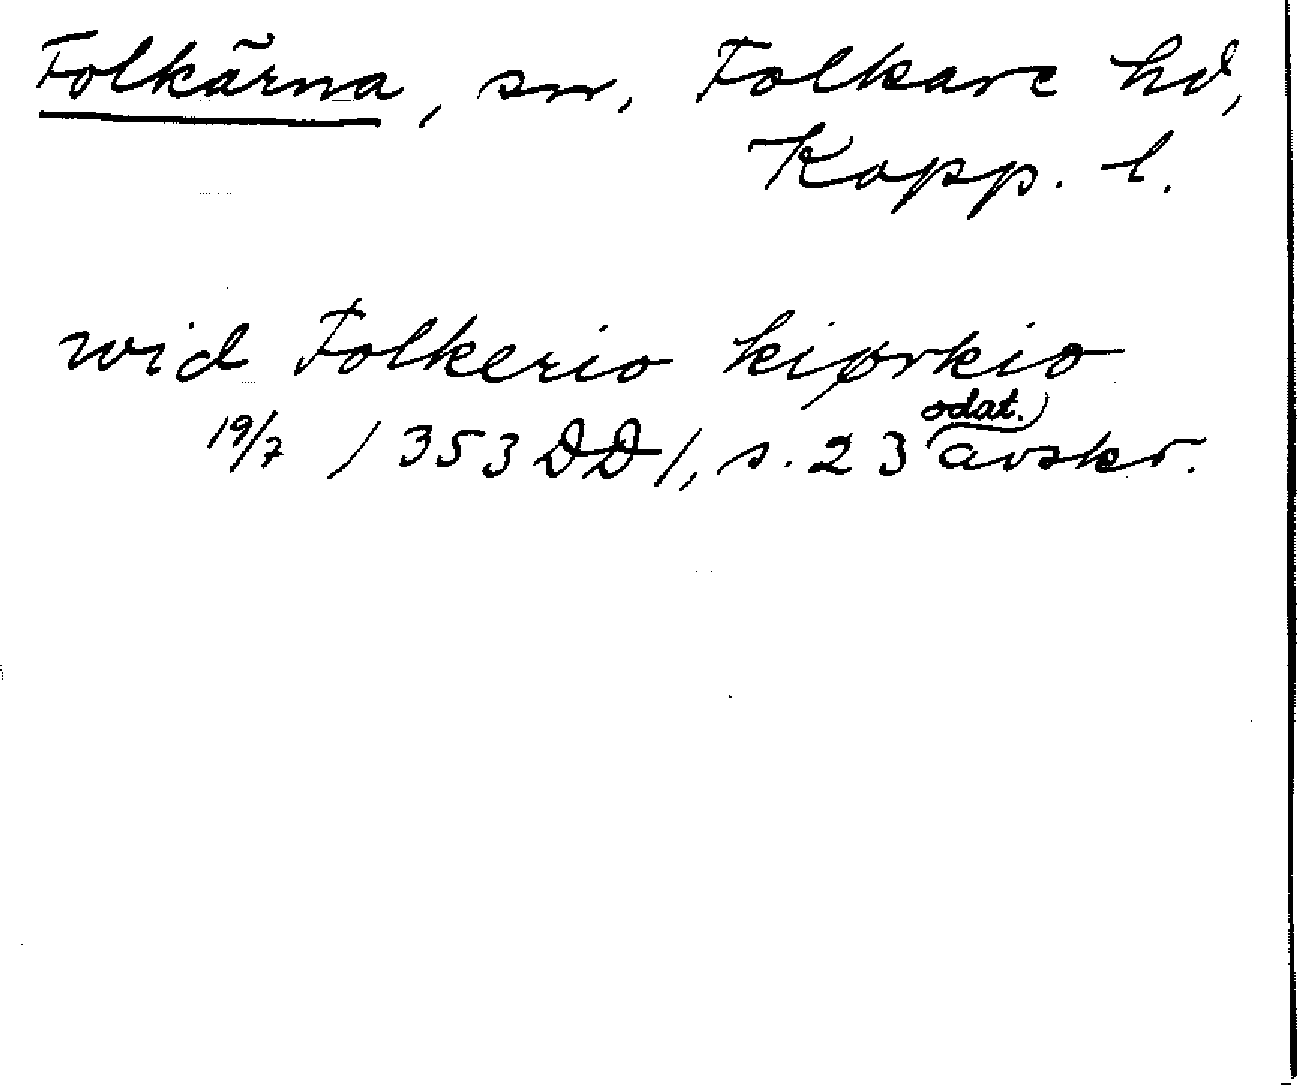 Folkärna, sn, Folkare hd,
Kopp. l.
wid Folkerio kiørkio
19/7 1353 DD1, s. 23 odat. avskr.